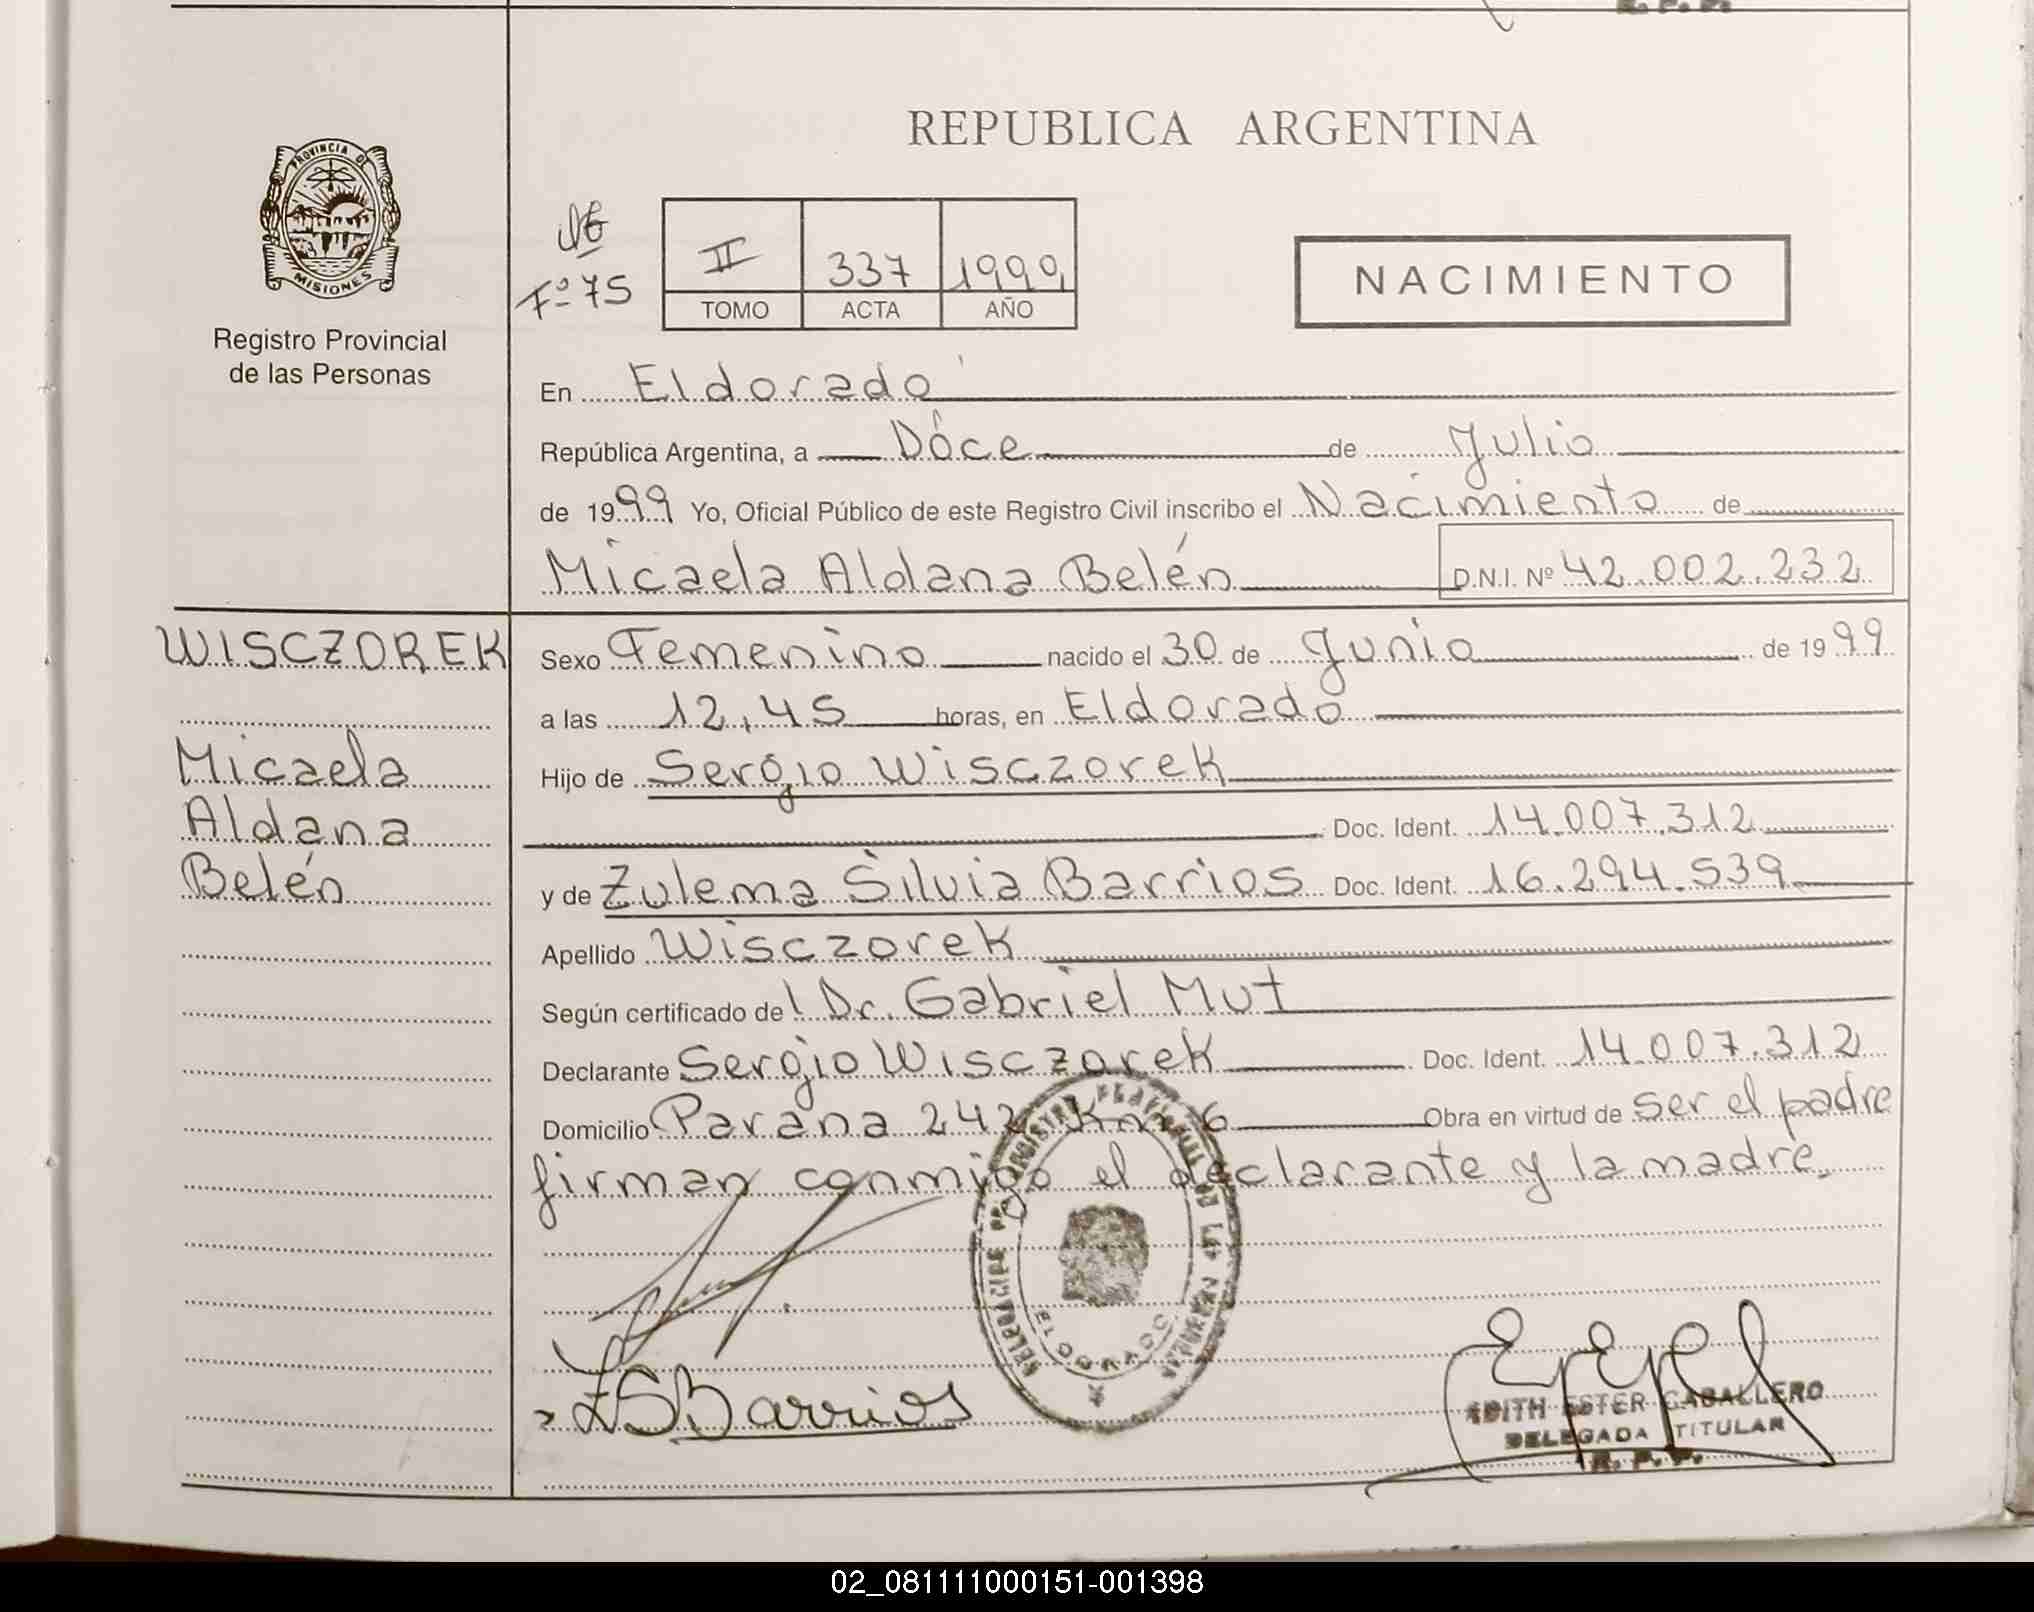 R. P. P.
REPUBLICA ARGENTINA
PROVINCIA DE
MISIONES
Registro Provincial
de las Personas
Fº 75
II 337 1999
TOMO ACTA AÑO
NACIMIENTO
En Eldorado
República Argentina, a Doce de Julio
de 1999 Yo, Oficial Público de este Registro Civil inscribo el Nacimiento de
Micaela Aldana Belén D.N.I. Nº 42.002.232
WISCZOREK
Micaela
Aldana
Belén
Sexo Femenino nacido el 30 de Junio de 1999
a las 12,45 horas, en Eldorado
Hijo de Sergio Wisczorek
Doc. Ident. 14.007.312
y de Zulema Silvia Barrios Doc. Ident. 16.294.539
Apellido Wisczorek
Según certificado de l Dr. Gabriel Mut
Declarante Sergio Wisczorek Doc. Ident. 14.007.312
Domicilio Parana 242 Km 6 Obra en virtud de ser el padre
firman conmigo el declarante y la madre.
ZSBarrios
EDITH ESTER CABALLERO
DELEGADA TITULAR
R. P. P.
02_081111000151-001398